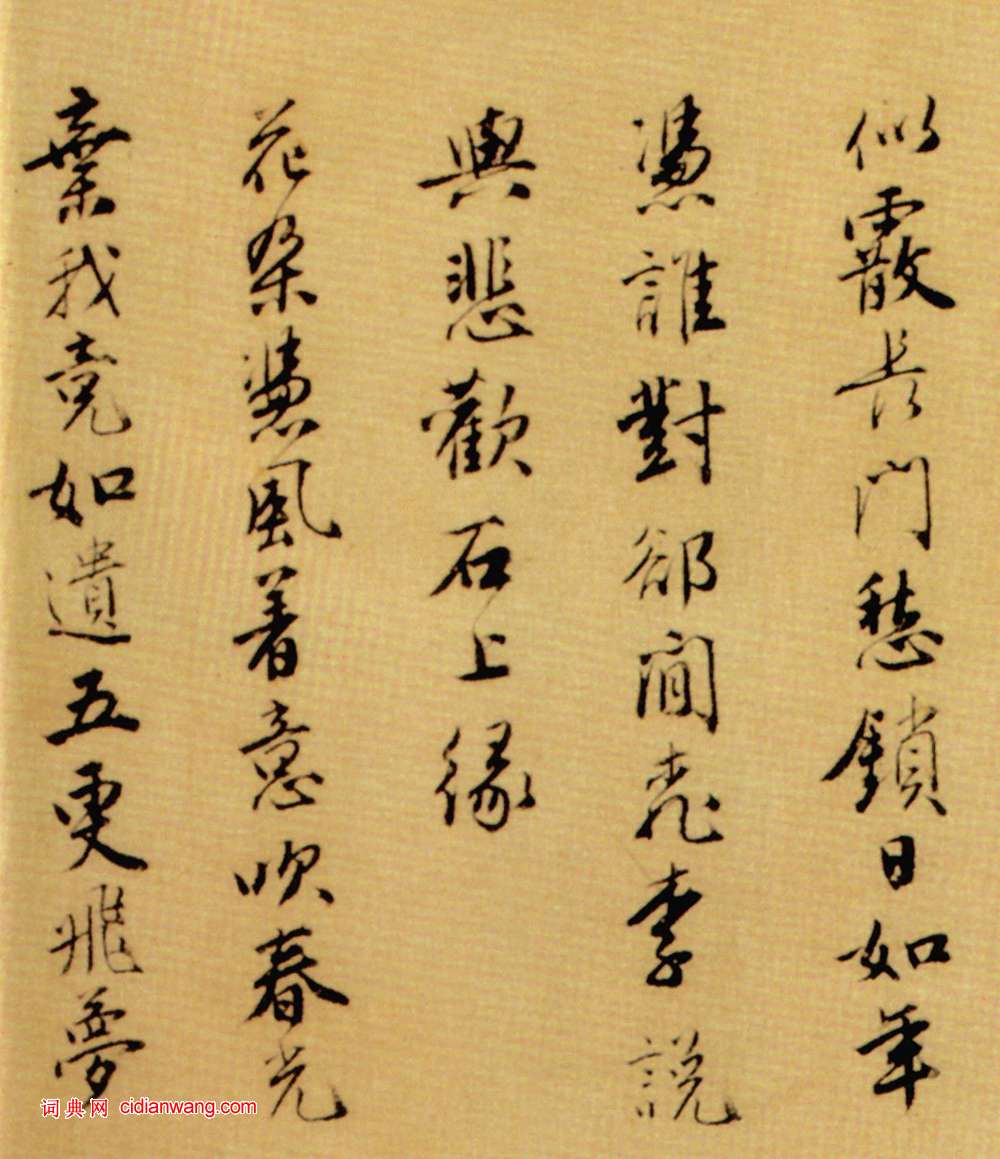 似霰長門愁鎖日如年
憑誰對郤閒桃李說
與悲歡石上緣
花朵憑風着意吹春光
棄我竟如遺五更飛夢
词典网 cidianwang.com